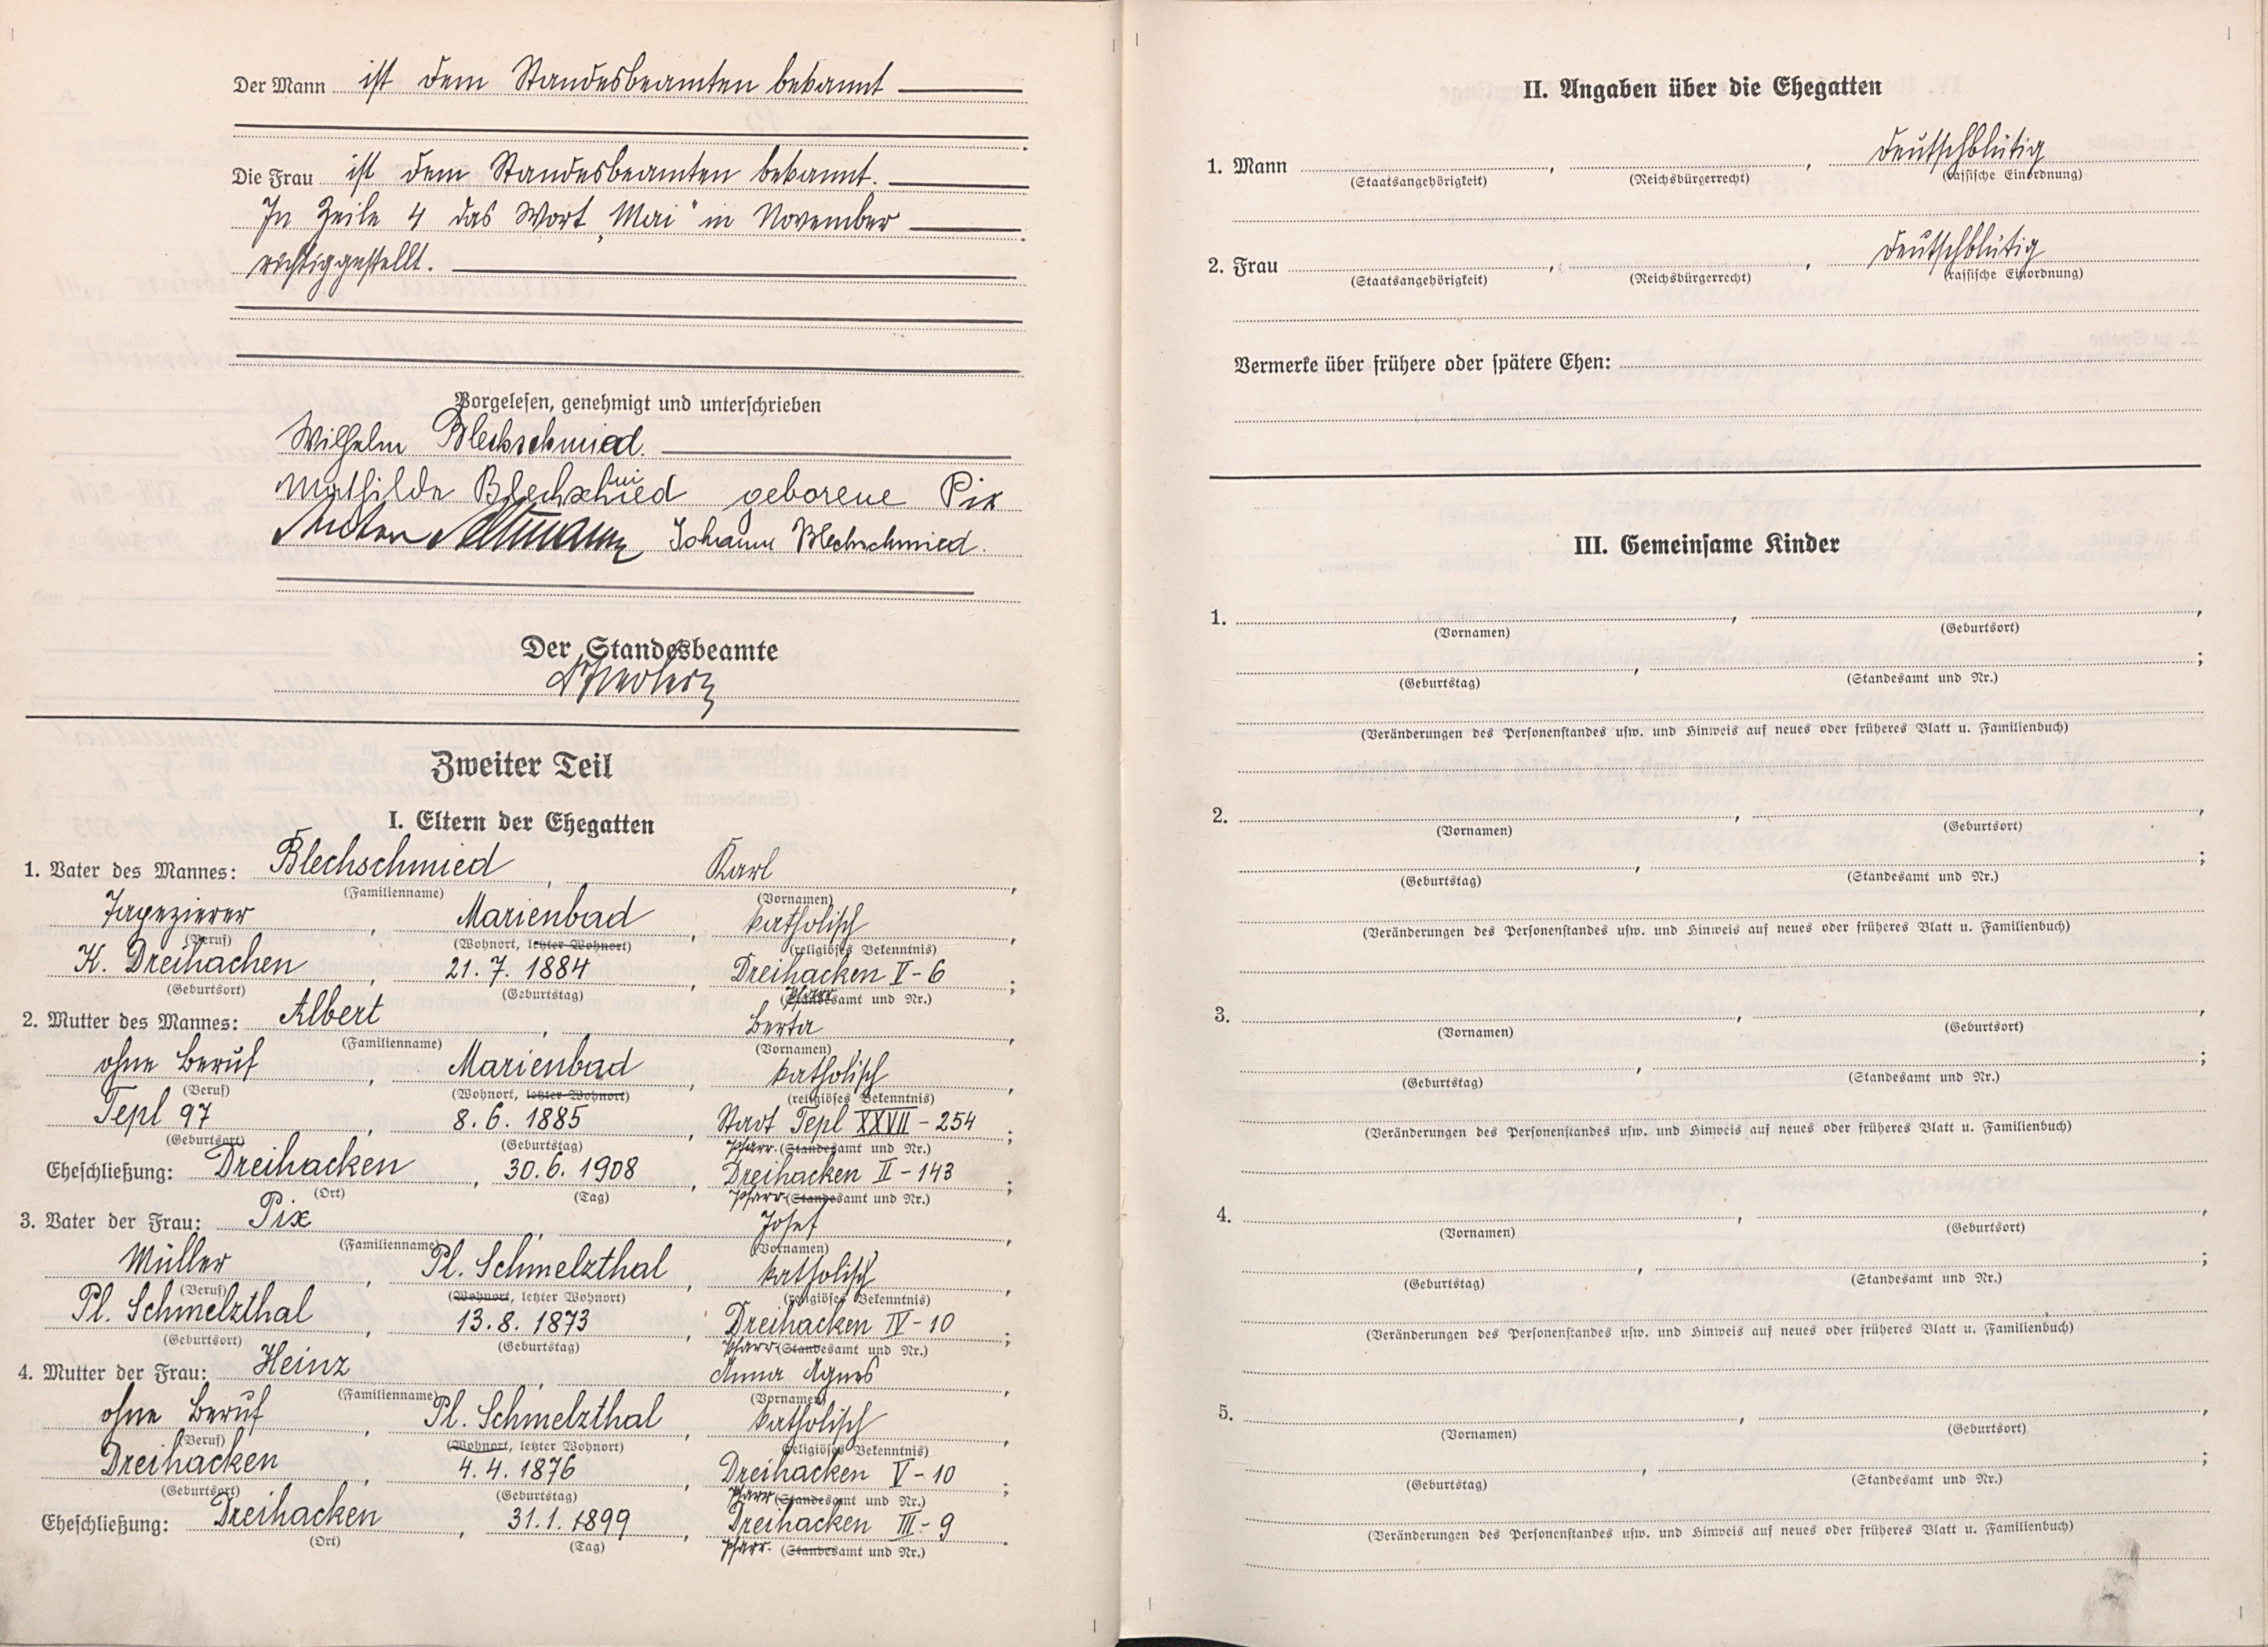 Der Mann ist dem Standesbeamten bekannt
Die Frau ist dem Standesbeamten bekannt.
In Zeile 4 das Wort „Mai" in November
richtiggestellt.
Vorgelesen, genehmigt und unterschrieben
Wilhelm Blechschmied.
Mathilde Blechschmied geborene Pix
Anton Johann Blechschmied.
Der Standesbeamte
Zweiter Teil
I. Eltern der Ehegatten
1. Vater des Mannes: Blechschmied, Karl,
(Familienname) (Vornamen)
Tapezierer, Marienbad, katholisch,
(Beruf) (Wohnort, letzter Wohnort) (religiöses Bekenntnis)
K. Dreihacken, 21.7.1884, Dreihacken V-6;
(Geburtsort) (Geburtstag) Pfarr (Standesamt und Nr.)
2. Mutter des Mannes: Albert, Berta,
(Familienname) (Vornamen)
ohne Beruf, Marienbad, katholisch,
(Beruf) (Wohnort, letzter Wohnort) (religiöses Bekenntnis)
Tepl 97, 8.6.1885, Stadt Tepl XXVII-254;
(Geburtsort) (Geburtstag) Pfarr. (Standesamt und Nr.)
Eheschließung: Dreihacken, 30.6.1908, Dreihacken II-143;
(Ort) (Tag) Pfarr (Standesamt und Nr.)
3. Vater der Frau: Pix, Josef,
(Familienname) (Vornamen)
Müller, Pl. Schmelzthal, katholisch,
(Beruf) (Wohnort, letzter Wohnort) (religiöses Bekenntnis)
Pl. Schmelzthal, 13.8.1873, Dreihacken IV-10;
(Geburtsort) (Geburtstag) Pfarr (Standesamt und Nr.)
4. Mutter der Frau: Heinz, Anna Agnes,
(Familienname) (Vornamen)
ohne Beruf, Pl. Schmelzthal, katholisch,
(Beruf) (Wohnort, letzter Wohnort) (religiöses Bekenntnis)
Dreihacken, 4.4.1876, Dreihacken V-10;
(Geburtsort) (Geburtstag) Pfarr (Standesamt und Nr.)
Eheschließung: Dreihacken, 31.1.1899, Dreihacken III-9.
(Ort) (Tag) Pfarr. (Standesamt und Nr.)
II. Angaben über die Ehegatten
1. Mann , , deutschblütig
(Staatsangehörigkeit) (Reichsbürgerrecht) (rassische Einordnung)
2. Frau , , deutschblütig
(Staatsangehörigkeit) (Reichsbürgerrecht) (rassische Einordnung)
Vermerke über frühere oder spätere Ehen:
III. Gemeinsame Kinder
1. , ,
(Vornamen) (Geburtsort)
(Geburtstag) (Standesamt und Nr.)
(Veränderungen des Personenstandes usw. und Hinweis auf neues oder früheres Blatt u. Familienbuch)
2. , ,
(Vornamen) (Geburtsort)
(Geburtstag) (Standesamt und Nr.)
(Veränderungen des Personenstandes usw. und Hinweis auf neues oder früheres Blatt u. Familienbuch)
3. , ,
(Vornamen) (Geburtsort)
(Geburtstag) (Standesamt und Nr.)
(Veränderungen des Personenstandes usw. und Hinweis auf neues oder früheres Blatt u. Familienbuch)
4. , ,
(Vornamen) (Geburtsort)
(Geburtstag) (Standesamt und Nr.)
(Veränderungen des Personenstandes usw. und Hinweis auf neues oder früheres Blatt u. Familienbuch)
5. , ,
(Vornamen) (Geburtsort)
(Geburtstag) (Standesamt und Nr.)
(Veränderungen des Personenstandes usw. und Hinweis auf neues oder früheres Blatt u. Familienbuch)